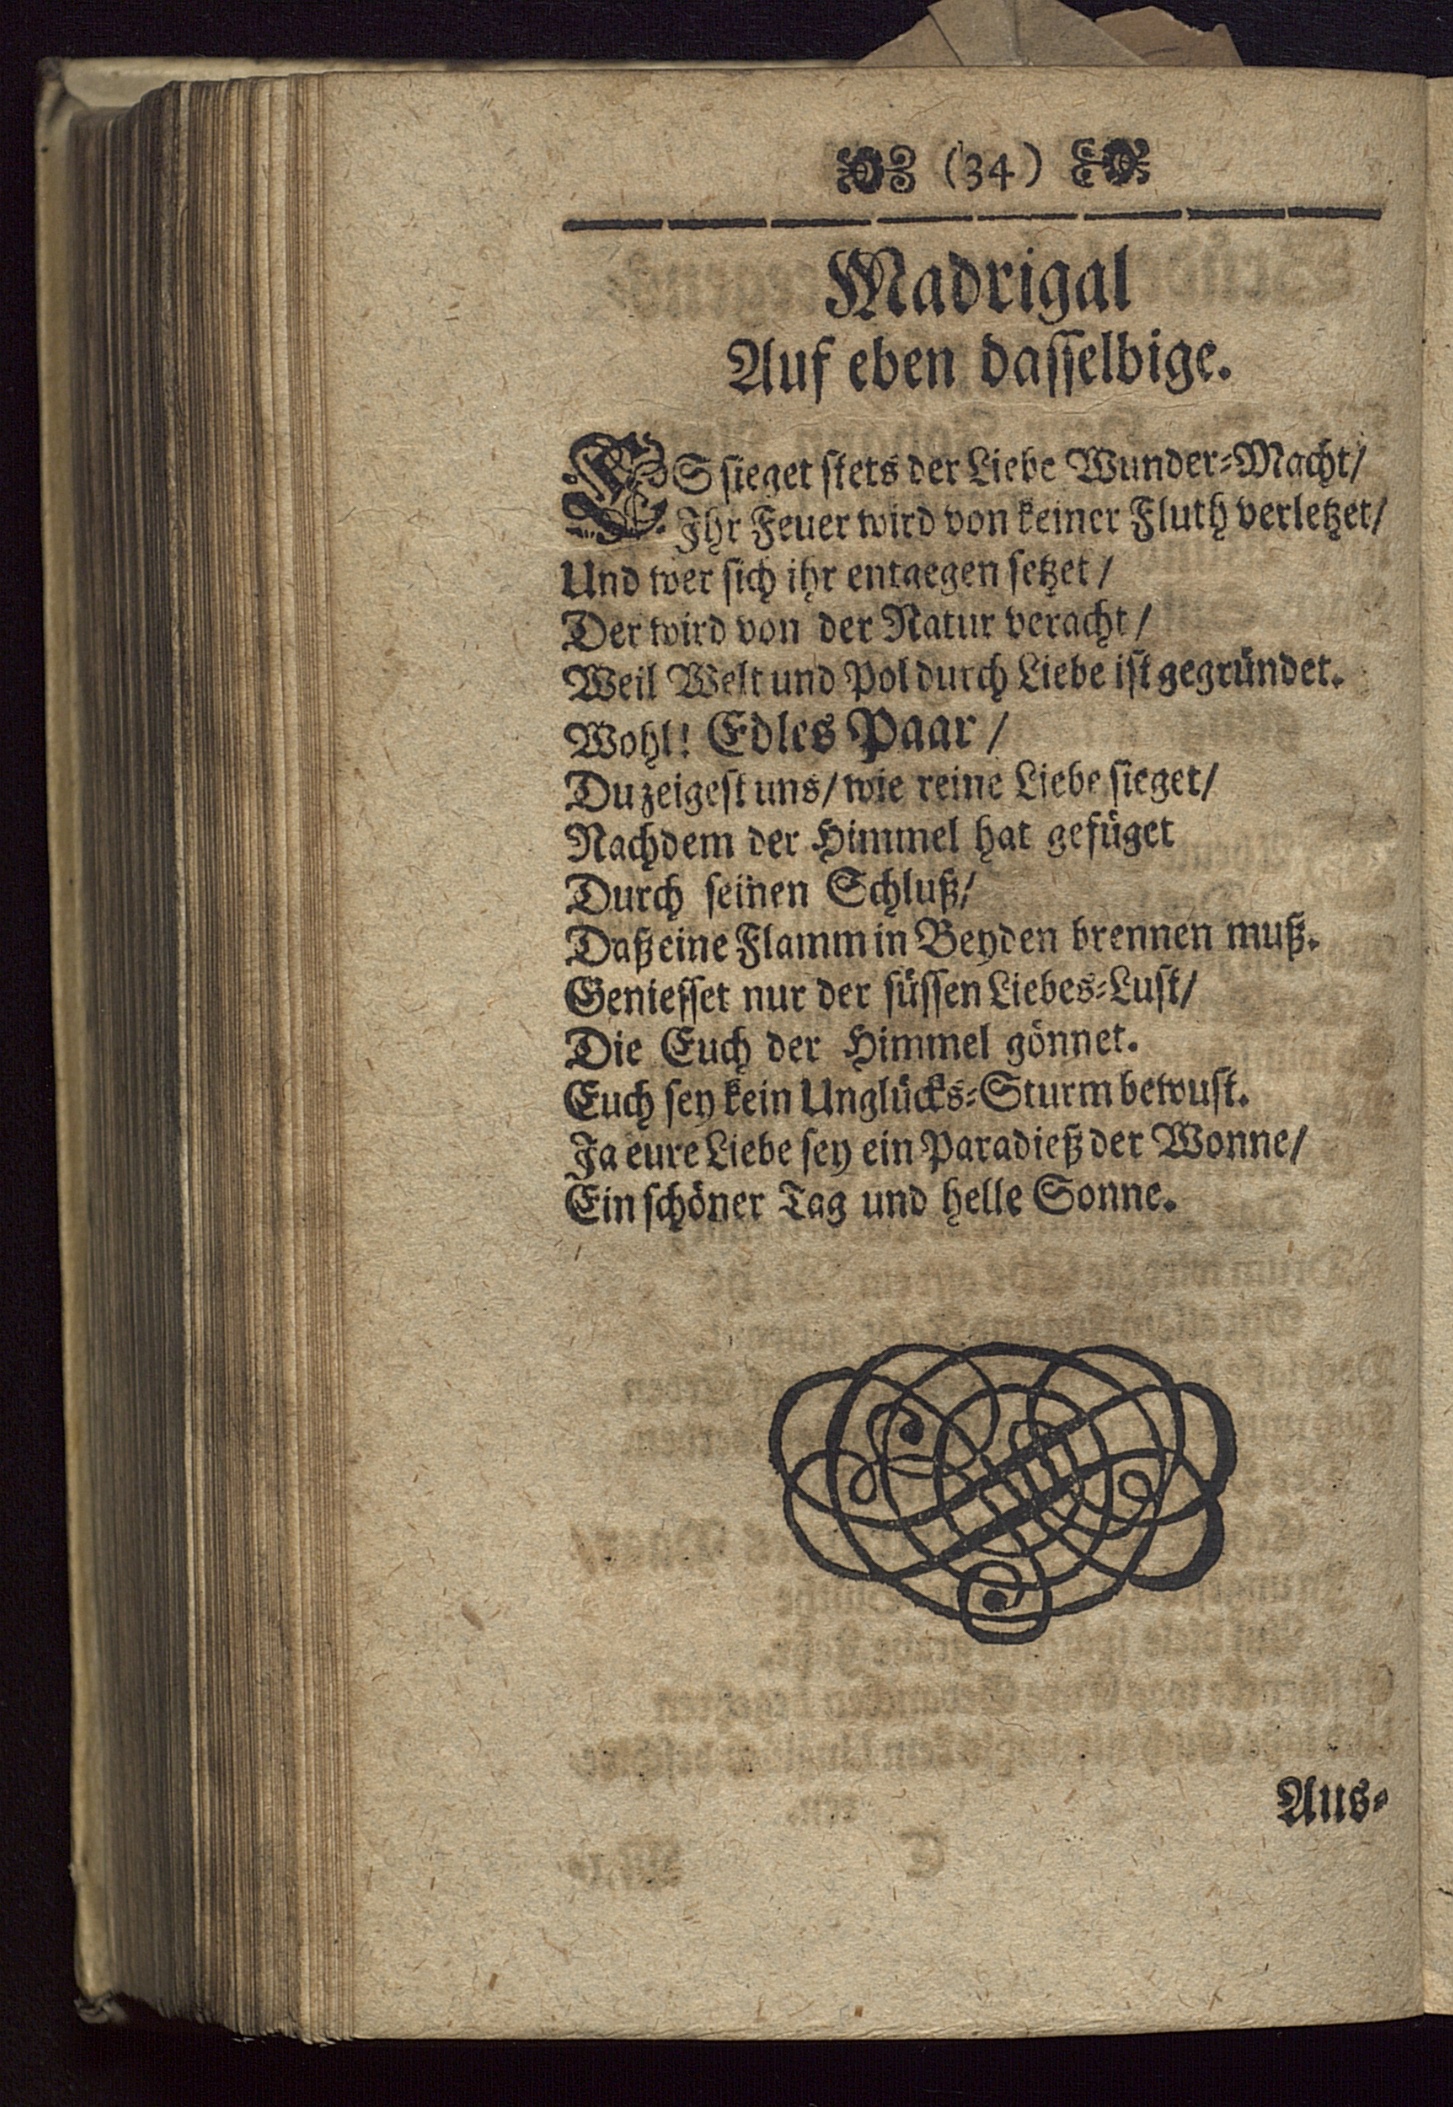 (34)
Madrigal
Auf eben dasselbige.
ES sieget stets der Liebe Wunder-Macht/
Ihr Feuer wird von keiner Fluth verletzet/
Und wer sich ihr entgegen setzet/
Der wird von der Natur veracht/
Weil Welt und Pol durch Liebe ist gegründet.
Wohl! Edles Paar/
Du zeigest uns/ wie reine Liebe sieget/
Nachdem der Himmel hat gefüget
Durch seinen Schluß/
Daß eine Flamm in Beyden brennen muß.
Geniesset nur der süssen Liebes-Lust/
Die Euch der Himmel gönnet.
Euch sey kein Unglücks-Sturm bewust.
Ja eure Liebe sey ein Paradieß der Wonne/
Ein schöner Tag und helle Sonne.
Aus-